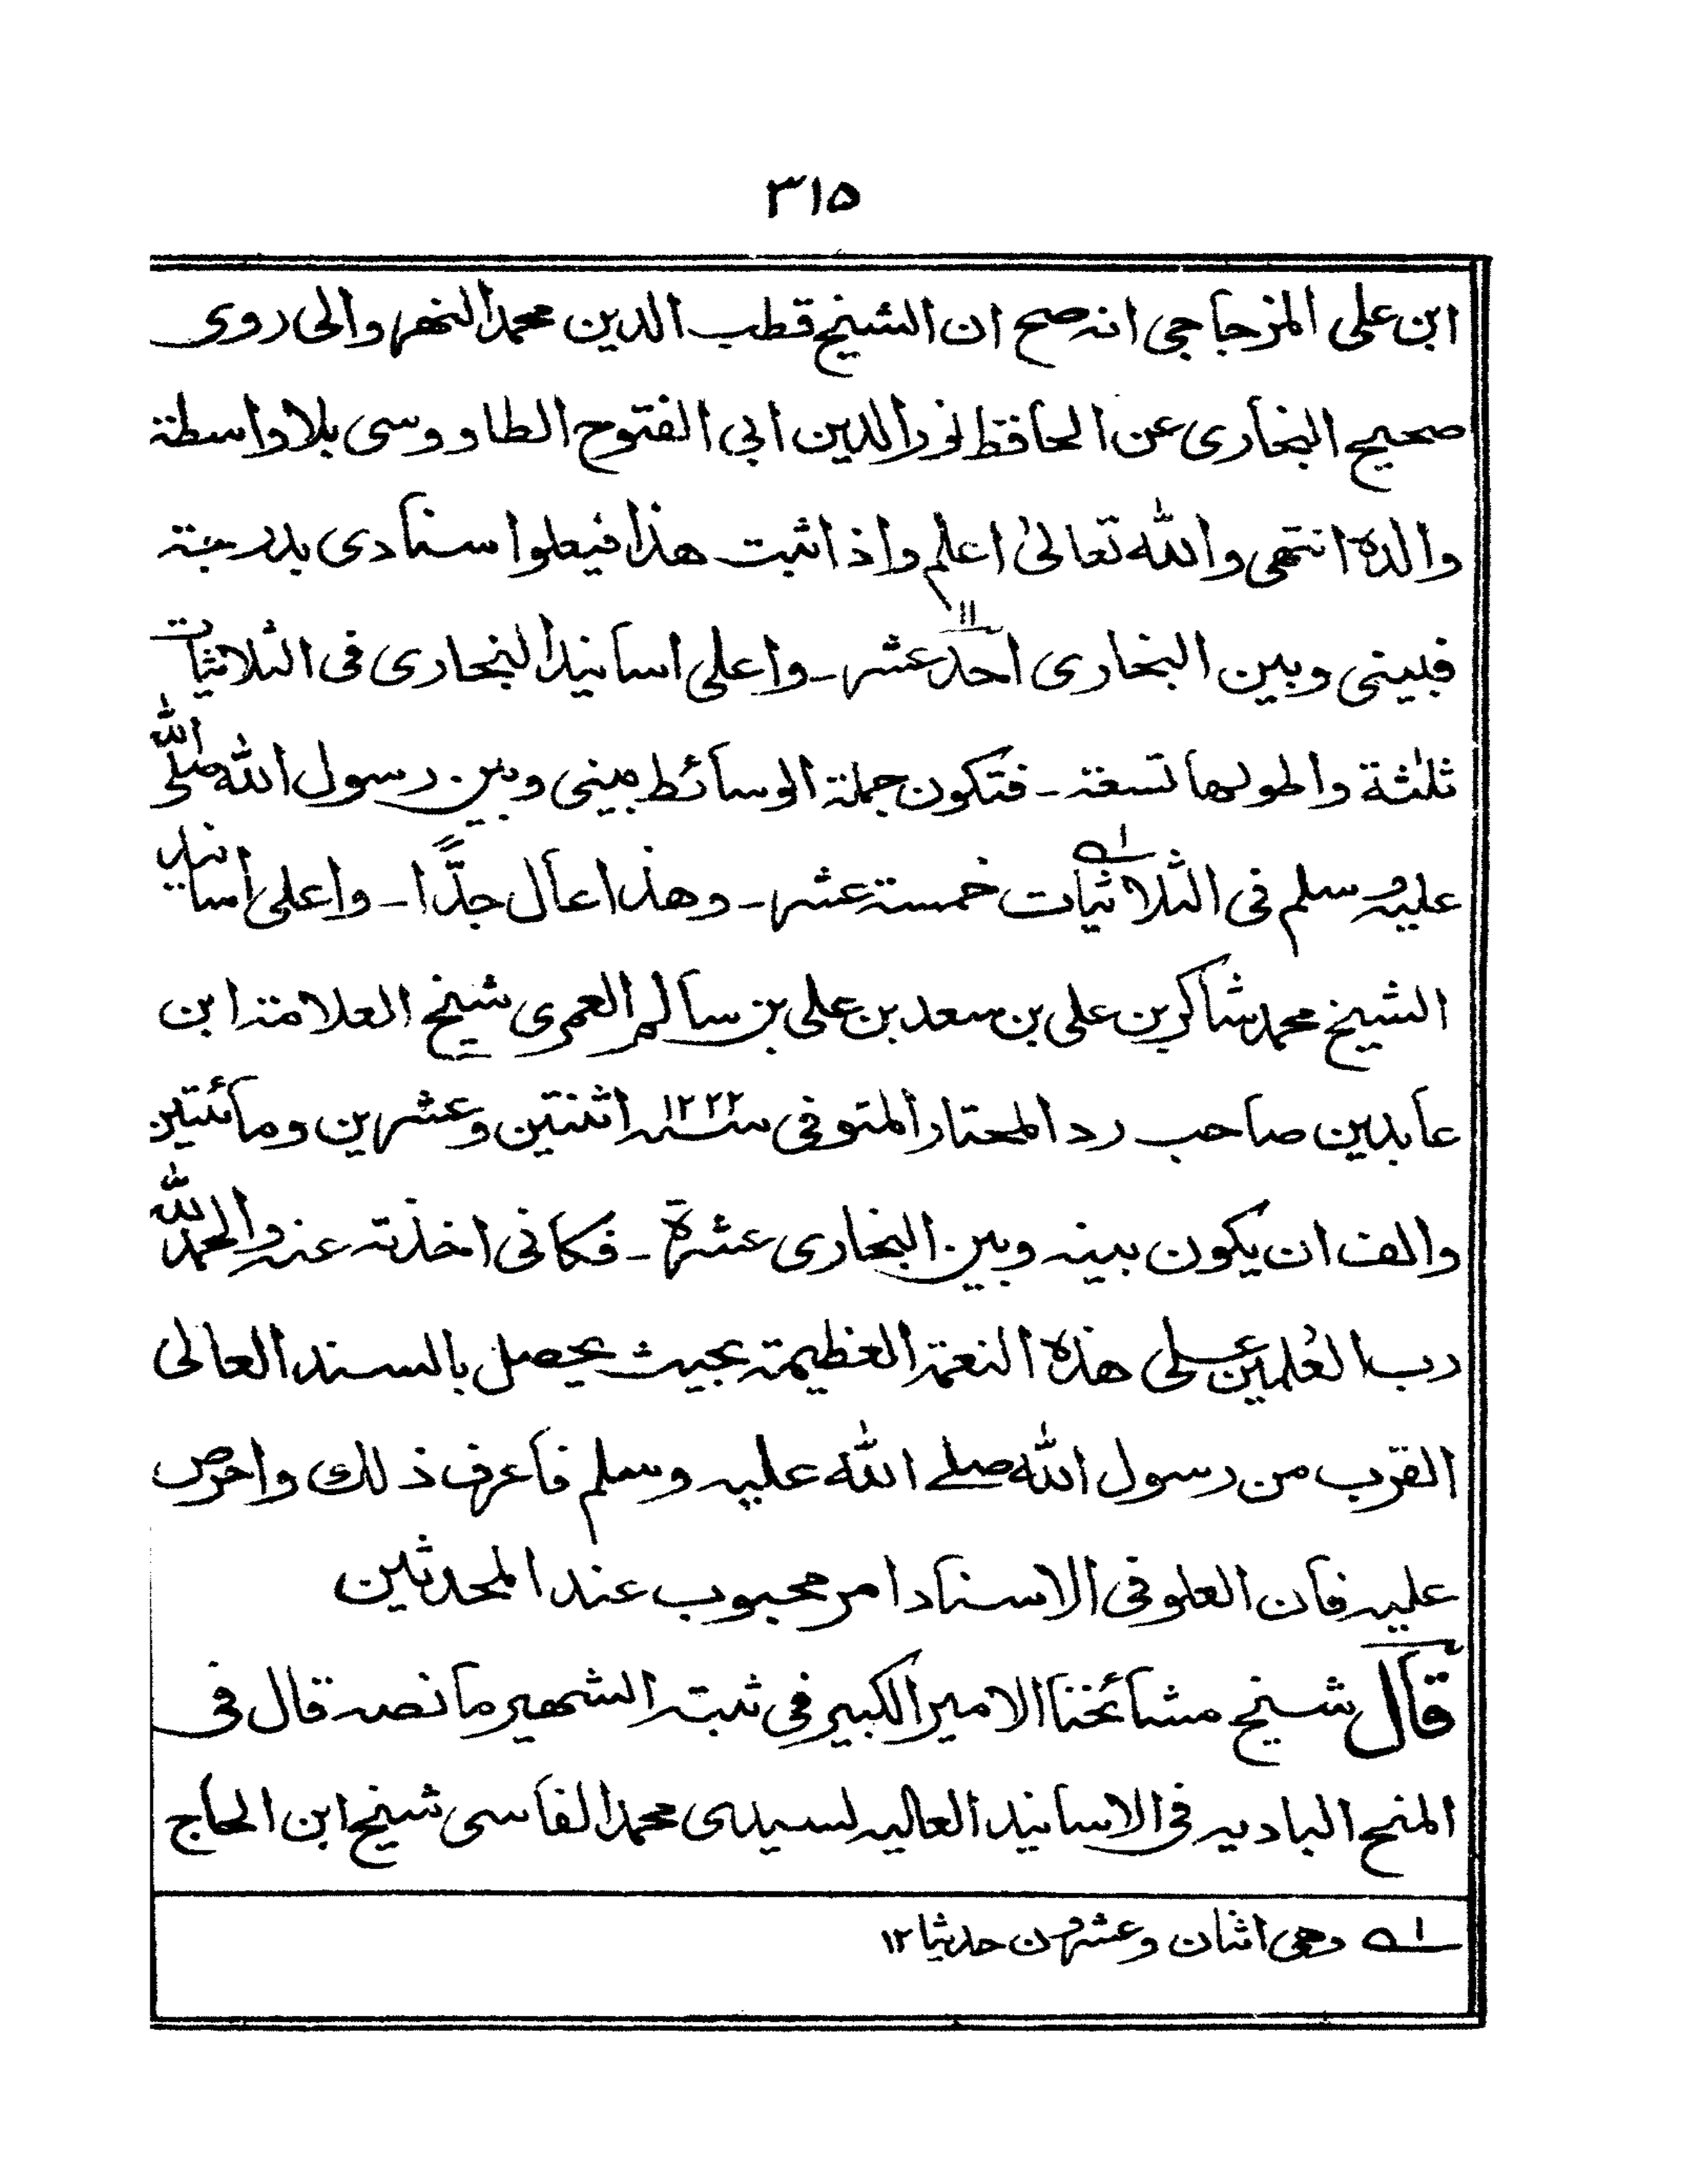 ٣١٥
ابن علي المزجاجي انه صح ان الشيخ قطب الدين محمد النهروالي روى
صحيح البخاري عن الحافظ نور الدين ابي الفتوح الطاووسي بلا واسطة
والده انتهى والله تعالىٰ اعلم واذا ثبت هذا فيعلوا سنادي بدرجة
فبيني وبين البخاري احد عشر ۱۱ ـ واعلى اسانيد البخاري في الثلاثيات
ثلٰثة واطولها تسعة ـ فتكون جملة الوسائط بيني وبين رسول الله صلى الله
عليه وسلم في الثلاثيات ١ه خمسة عشر ـ وهذا عال جدًّا ـ واعلى اسانيد
الشيخ محمد شاكر بن علي بن سعد بن علي بن سالم العمري شيخ العلامة ابن
عابدين صاحب رد المحتار المتوفى سنه ١٢٢٢ اثنتين وعشرين ومائتين
والف ان يكون بينه وبين البخاري عشرة ـ فكاني اخذته عنه والحمد لله
رب العٰلمين على هذه النعمة العظيمة بحيث يحصل بالسند العالي
القرب من رسول الله صلے الله عليه وسلم فاعرف ذلك واحرص
عليه فان العلو في الاسناد امر محبوب عند المحدثين
قال شيخ مشائخنا الامير الكبير في ثبته الشهير ما نصه قال في
المنح الباديه في الاسانيد العاليه لسيدى محمد الفاسي شيخ ابن الحاج
١ه وهي اثنان وعشرون حديثا ١٢